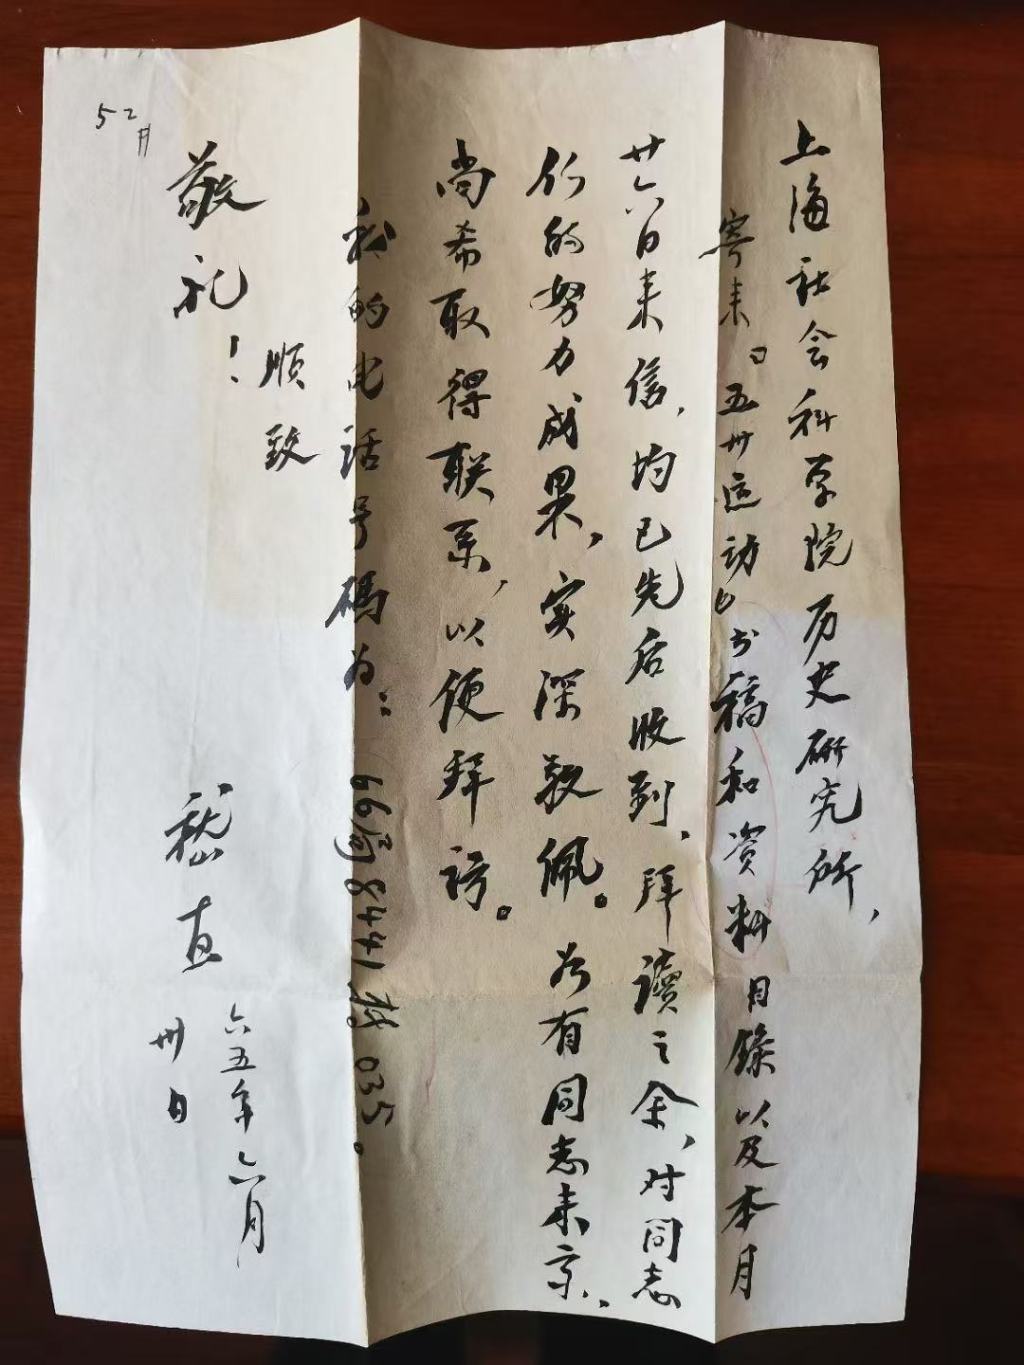 上海社会科学院历史研究所，
寄来《五卅运动》书稿和资料目录以及本月
廿六日来信，均已先后收到，拜讀之余，对同志
们的努力成果，实深敬佩。若有同志来京，
尚希取得联系，以便拜访。
我的电话号碼为：66局8441转035。
顺致
敬礼！
嵇直
六五年六月
卅日